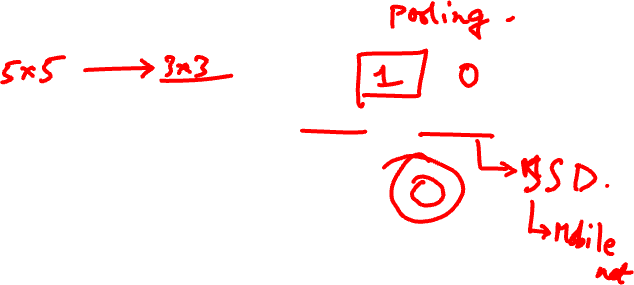 Pooling.
5x5 → 3x3
1 0
SSD.
Mobile
net